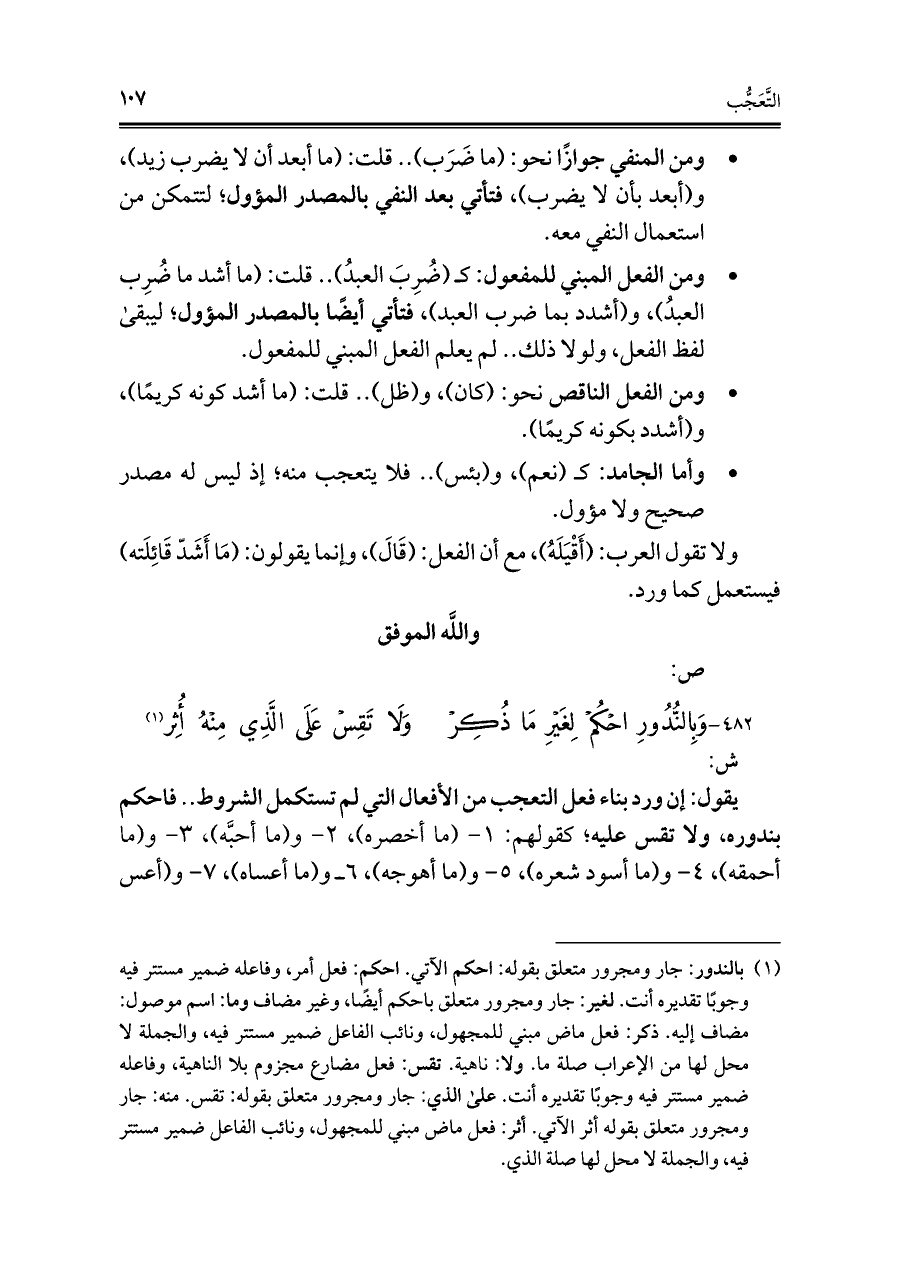 التَّعَجُّب ١٠٧
• ومن المنفي جوازًا نحو: (ما ضَرَب).. قلت: (ما أبعد أن لا يضرب زيد)،
و(أبعد بأن لا يضرب)، فتأتي بعد النفي بالمصدر المؤول؛ لتتمكن من
استعمال النفي معه.
• ومن الفعل المبني للمفعول: كـ (ضُرِبَ العبدُ).. قلت: (ما أشد ما ضُرِب
العبدُ)، و(أشدد بما ضرب العبد)، فتأتي أيضًا بالمصدر المؤول؛ ليبقىٰ
لفظ الفعل، ولولا ذلك.. لم يعلم الفعل المبني للمفعول.
• ومن الفعل الناقص نحو: (كان)، و(ظل).. قلت: (ما أشد كونه كريمًا)،
و(أشدد بكونه كريمًا).
• وأما الجامد: كـ (نعم)، و(بئس).. فلا يتعجب منه؛ إذ ليس له مصدر
صحيح ولا مؤول.
ولا تقول العرب: (أَقْيَلَهُ)، مع أن الفعل: (قَالَ)، وإنما يقولون: (مَا أَشَدّ قَائِلَته)
فيستعمل كما ورد.
واللَّه الموفق
ص:
٤٨٢-وَبِالنُّدُورِ احْكُمْ لِغَيْرِ مَا ذُكِرْ وَلَا تَقِسْ عَلَى الَّذِي مِنْهُ أُثِر(١)
ش:
يقول: إن ورد بناء فعل التعجب من الأفعال التي لم تستكمل الشروط.. فاحكم
بندوره، ولا تقس عليه؛ كقولهم: ١- (ما أخصره)، ٢- و(ما أحبَّه)، ٣- و(ما
أحمقه)، ٤- و(ما أسود شعره)، ٥- و(ما أهوجه)، ٦ـ و(ما أعساه)، ٧- و(أعس
(١) بالندور: جار ومجرور متعلق بقوله: احكم الآتي. احكم: فعل أمر، وفاعله ضمير مستتر فيه
وجوبًا تقديره أنت. لغير: جار ومجرور متعلق باحكم أيضًا، وغير مضاف وما: اسم موصول:
مضاف إليه. ذكر: فعل ماض مبني للمجهول، ونائب الفاعل ضمير مستتر فيه، والجملة لا
محل لها من الإعراب صلة ما. ولا: ناهية. تقس: فعل مضارع مجزوم بلا الناهية، وفاعله
ضمير مستتر فيه وجوبًا تقديره أنت. علىٰ الذي: جار ومجرور متعلق بقوله: تقس. منه: جار
ومجرور متعلق بقوله أثر الآتي. أثر: فعل ماض مبني للمجهول، ونائب الفاعل ضمير مستتر
فيه، والجملة لا محل لها صلة الذي.